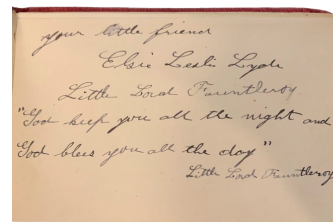 your little friend
Elsie Leslie Lyde
Little Lord Fauntleroy
"God keep you all the night and
God bless you all the day"
Little Lord Fauntleroy